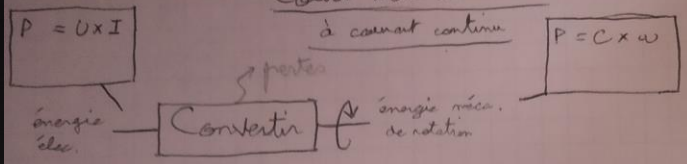 à courant continu
P = U x I
P = C x ω
pertes
énergie
élec.
Convertir
énergie méca.
de rotation